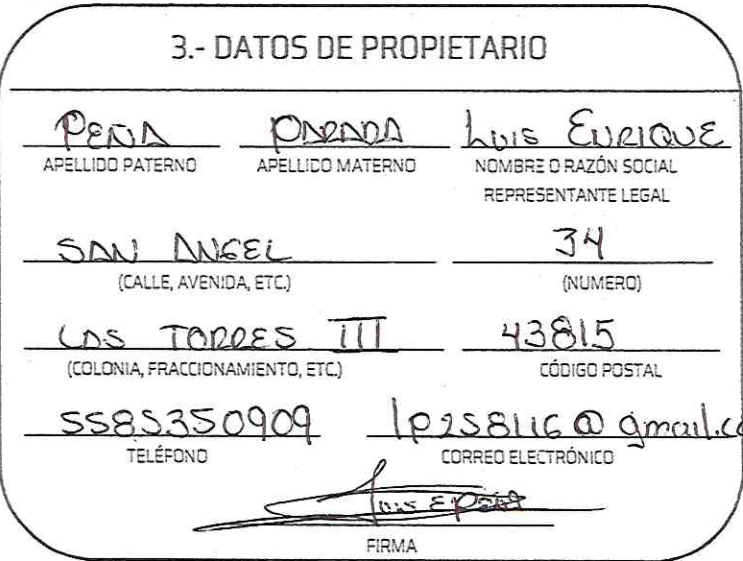 3.- DATOS DE PROPIETARIO
PEÑA PARADA LUIS ENRIQUE
APELLIDO PATERNO APELLIDO MATERNO NOMBRE O RAZÓN SOCIAL
REPRESENTANTE LEGAL
SAN ANGEL 34
(CALLE, AVENIDA, ETC.) (NUMERO)
LAS TORRES III 43815
(COLONIA, FRACCIONAMIENTO, ETC.) CÓDIGO POSTAL
5585350909 lp258116@gmail.co
TELÉFONO CORREO ELECTRÓNICO
Luis E Peña
FIRMA